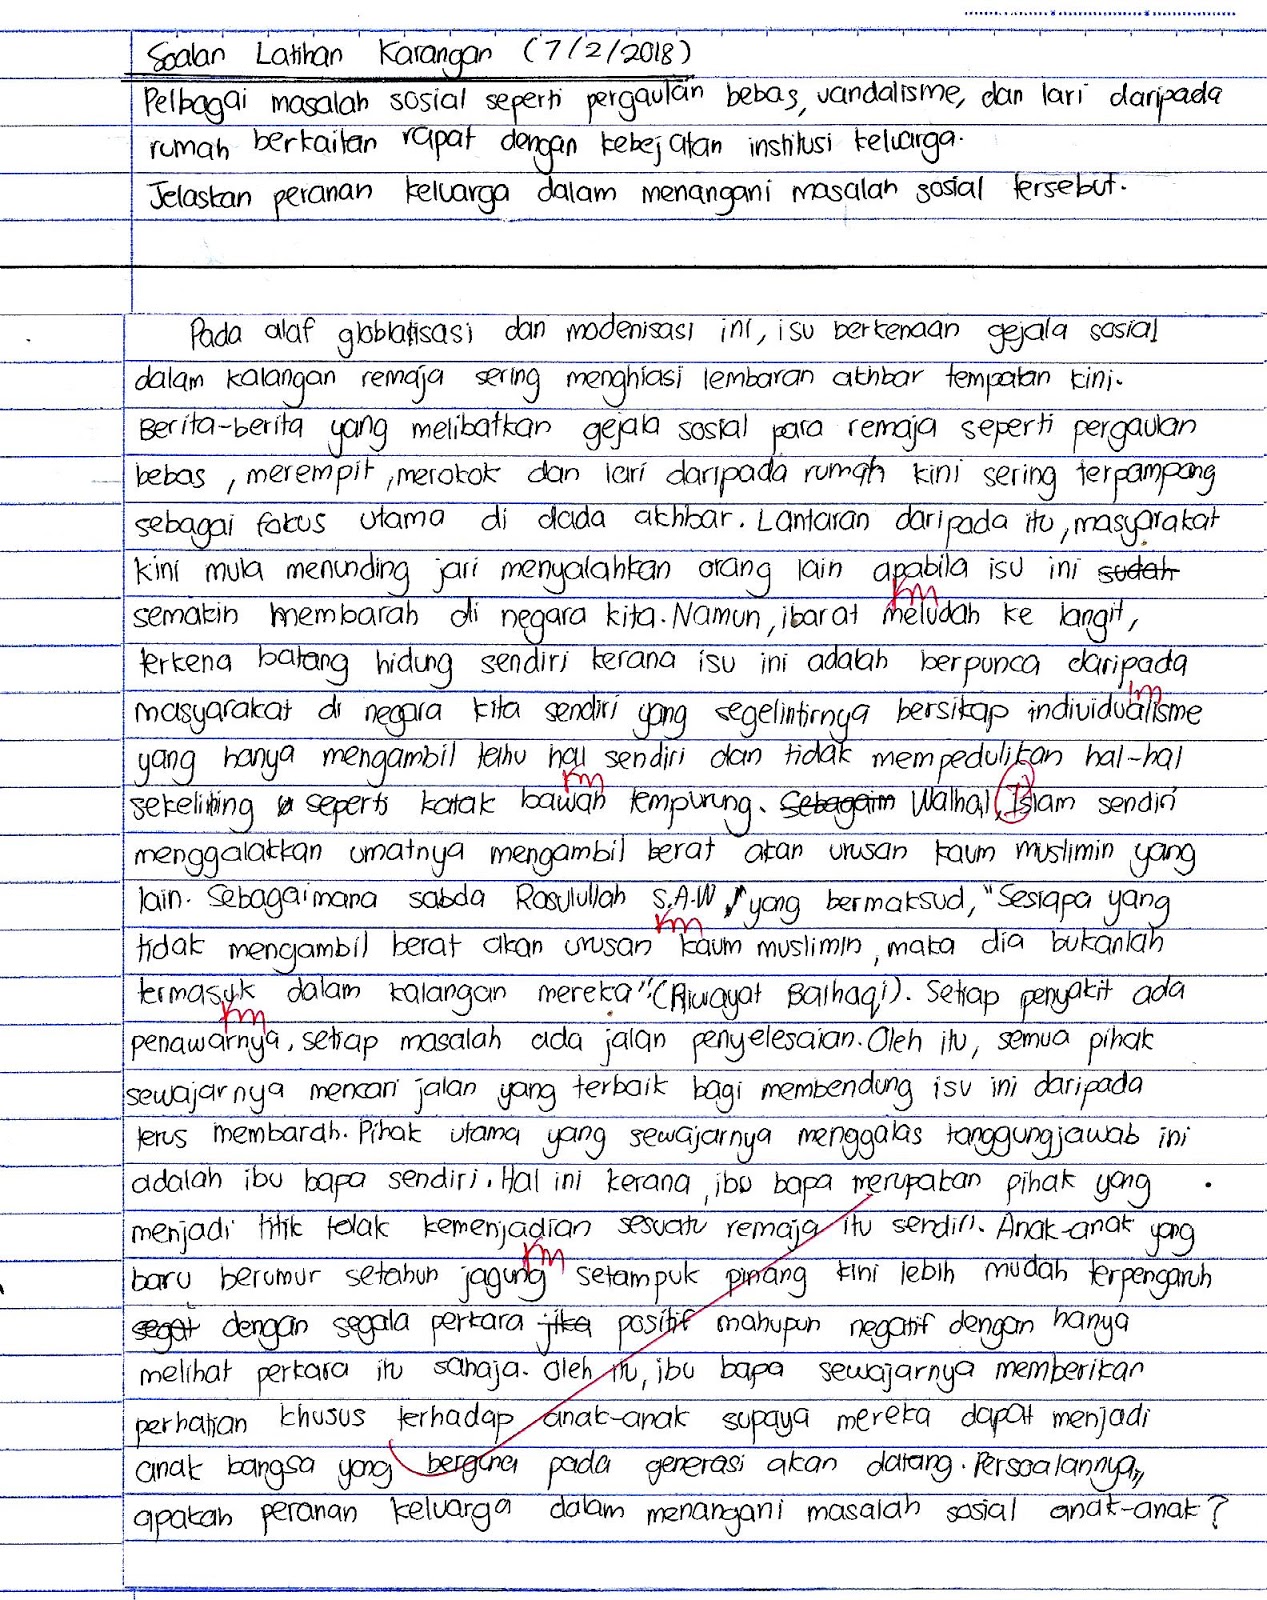 Soalan Latihan Karangan (7/2/2018)
Pelbagai masalah sosial seperti pergaulan bebas, vandalisme, dan lari daripada
rumah berkaitan rapat dengan kebejatan institusi keluarga.
Jelaskan peranan keluarga dalam menangani masalah sosial tersebut.
Pada alaf globlatisasi dan modenisasi ini, isu berkenaan gejala sosial
dalam kalangan remaja sering menghiasi lembaran akhbar tempatan kini.
Berita-berita yang melibatkan gejala sosial para remaja seperti pergaulan
bebas, merempit, merokok dan lari daripada rumah kini sering terpampang
sebagai fokus utama di dada akhbar. Lantaran daripada itu, masyarakat
kini mula menunding jari menyalahkan orang lain apabila isu ini sudah
km
semakin membarah di negara kita. Namun, ibarat meludah ke langit,
terkena batang hidung sendiri kerana isu ini adalah berpunca daripada
im
masyarakat di negara kita sendiri yang segelintirnya bersikap individualisme
yang hanya mengambil tahu hal sendiri dan tidak mempedulikan hal-hal
km
sekeliling seperti katak bawah tempurung. Sebagaim Walhal, Islam sendiri
menggalakkan umatnya mengambil berat akan urusan kaum muslimin yang
lain. Sebagaimana sabda Rasulullah S.A.W, yang bermaksud, "Sesiapa yang
km
tidak mengambil berat akan urusan kaum muslimin, maka dia bukanlah
termasuk dalam kalangan mereka" (Riwayat Baihaqi). Setiap penyakit ada
km
penawarnya, setiap masalah ada jalan penyelesaian. Oleh itu, semua pihak
sewajarnya mencari jalan yang terbaik bagi membendung isu ini daripada
terus membarah. Pihak utama yang sewajarnya menggalas tanggungjawab ini
adalah ibu bapa sendiri. Hal ini kerana, ibu bapa merupakan pihak yang
menjadi titik tolak kemenjadian sesuatu remaja itu sendiri. Anak-anak yang
km
baru berumur setahun jagung setampuk pinang kini lebih mudah terpengaruh
segat dengan segala perkara jika positif mahupun negatif dengan hanya
melihat perkara itu sahaja. Oleh itu, ibu bapa sewajarnya memberikan
perhatian khusus terhadap anak-anak supaya mereka dapat menjadi
anak bangsa yang berguna pada generasi akan datang. Persoalannya,
apakah peranan keluarga dalam menangani masalah sosial anak-anak?